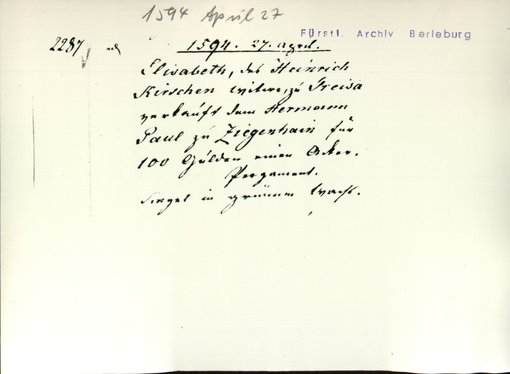 1594 April 27
Fürstl. Archiv Berleburg
2287
1594. 27. April.
Elisabeth, des Heinrich
Kirschen witwe, zu Treisa
verkauft dem Hermann
Paul zu Ziegenhain für
100 Gulden einen Acker.
Pergament.
Siegel in grünem Wachs.